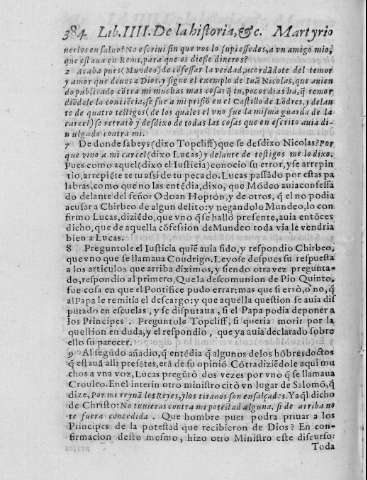 384 Lib. IIII. De la historia, &c. Martyrio
nerlos en saluo? No escriui sin que vos lo supiessedes, a vn amigo mio,
que estaua en Roma, para que os diesse dineros?
Acaba pues (Mundeo) de cōfessar la verdad, acordādote del temor
y amor que deues a Dios, y sigue el exemplo de Nicolas, que auien
do publicado cōtra mi muchas mas cosas q̄ tu, pocos dias ha, q̄ temor
diēdole la conciēcia, se fue a mi prisō en el Castillo de Lōdres, y delan
te de quatro testigos (de los quales el vno fue la misma guarda de la
carcel) se retratò y desdixo de todas las cosas que en escrito auia di-
uulgado contra mi.
7 De donde sabeys (dixo Topcliff) que se desdixo Nicolas? Por
que vino a mi carcel (dixo Lucas) y delante de testigos me lo dixo.
Pues como aquel (dixo el Iusticia) conocio su error, y se arrepin
tio, arrepiēte te tu assi de tu pecado. Lucas passādo por estas pa
labras, como que no las entēdia, dixo, que Mōdeo auia confessa
do delante del señor Odoan Hopton, y de otros, q̄ el no podia
acusar a Chirbeo de algun delito: y negandolo Mundeo, lo con
firmo Lucas, diziēdo, que vno q̄ se hallò presente, auia entōces
dicho, que de aquella cōfession de Mundeo toda via le vendria
bien a Lucas.
8 Preguntole el Iusticia quiē auia sido, y respondio Chirbeo,
que vno que se llamaua Condrigo. Leyose despues su respuesta
a los articulos que arriba diximos, y siendo otra vez pregunta-
do, respondio al primero. Que la descomunion de Pio Quinto,
fue cosa en que el Pontifice pudo errar, mas que si errò, o no, q̄
al Papa le remitia el descargo: y que aquella question se auia dis
putado en escuelas, y se disputaua, si el Papa podia deponer a
los Principes. Preguntole Topcliff, si queria morir por la
question en duda, y el respondio, que ya auia declarado sobre
ello su parecer.
9 Al segundo añadio, q̄ entēdia q̄ algunos de los hōbres doctos
q̄ estauā alli presētes, erā de su opiniō. Cōtradiziēdole aqui mu
chos a vna voz, Lucas pregūtò dos vezes por vno q̄ se llamaua
Crouleo. En el interin otro ministro citò vn lugar de Salomō, q̄
dize, Por mi reynā los Reyes, y los tiranos son ensalçados. Ya q̄l dicho
de Christo: No tunieras contra mi potestad alguna, si de arriba no
te fuera concedida. Que hombre pues podra priuar a los
Principes de la potestad que recibieron de Dios? En con-
firmacion desto mesmo, hizo otro Ministro este discurso:
Toda